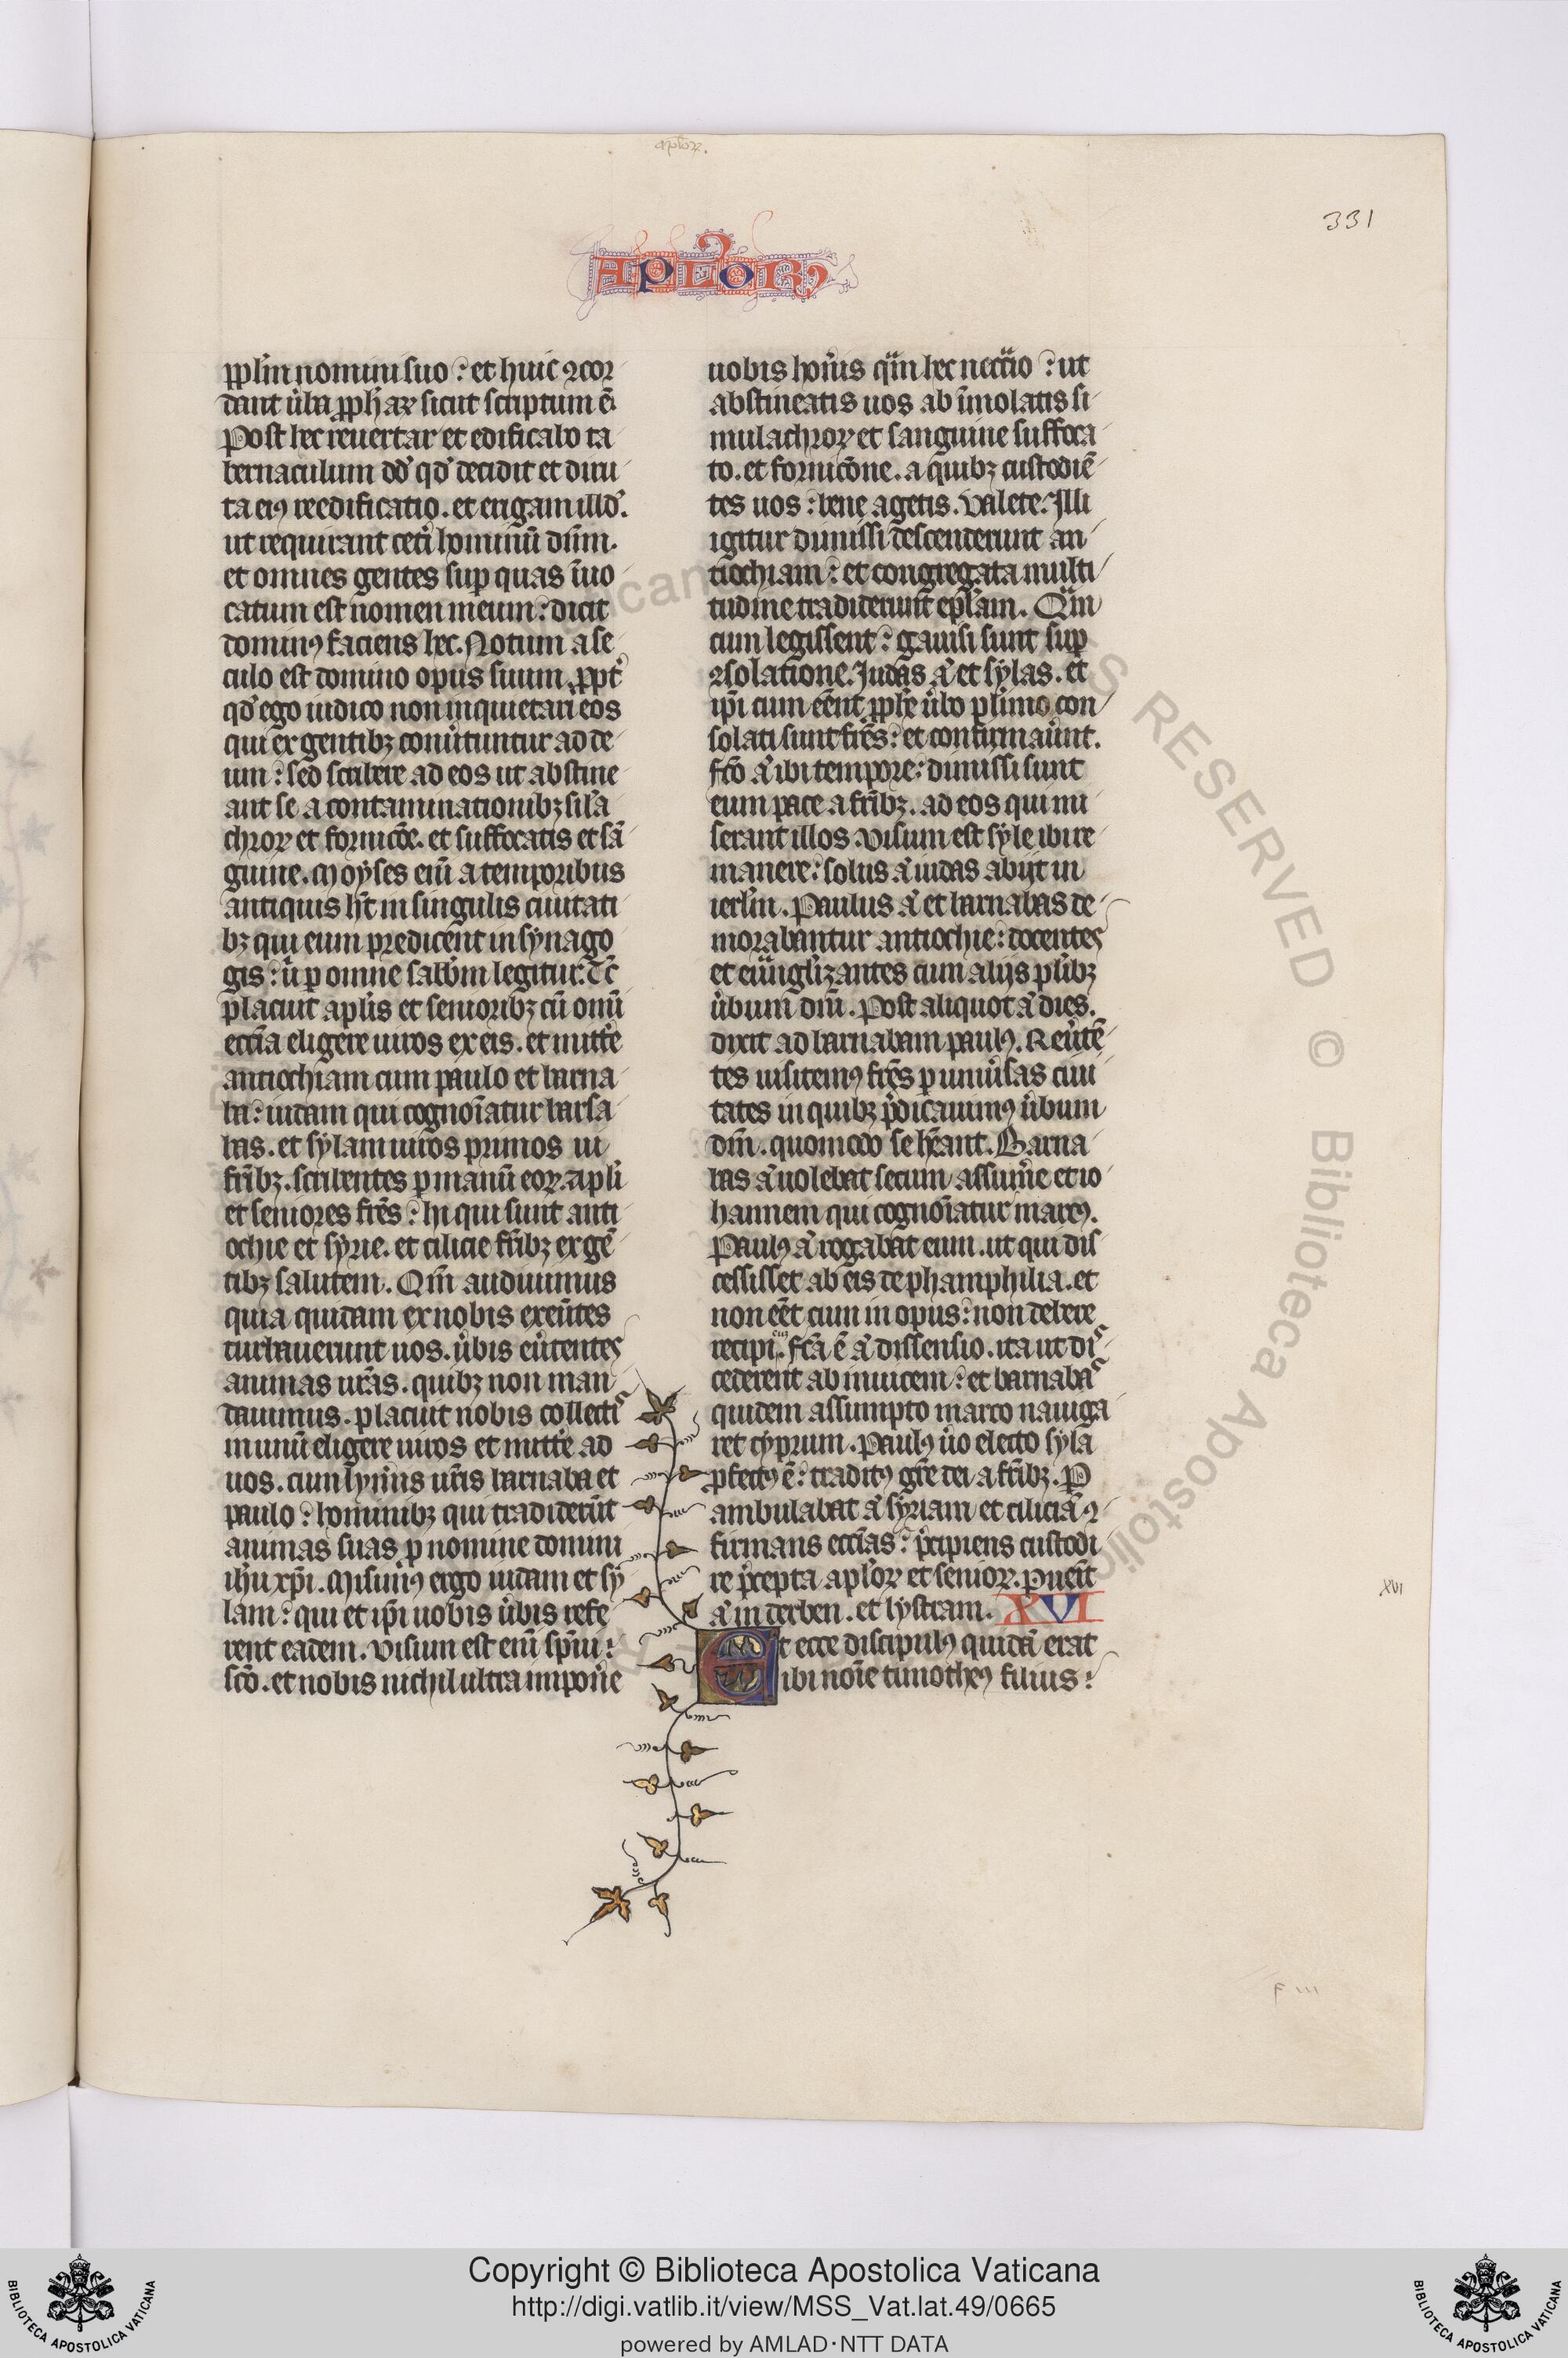 aplõꝝ.
331
APLOꝜ
pplm̄ nomini suo : et huic ꝯcor
dant ůba ꝓphaꝝ sicut scriptum ē.
Post hec reuertar et edificabo ta
bernaculum dd̾ qd̾ decidit et diru
ta eiꝰ reedificabo . et erigam illd̾.
ut requirant ceťi hominū dn̄m .
et omnes gentes suꝑ quas īuo
catum est nomen meum : dicit
dominꝰ faciens hec. Notum a se
culo est domino opus suum . ꝓpť
qd̾ ego iudico non inquietari eos
qui ex gentibꝫ conůtuntur ad de
um : sed scribere ad eos ut abstine
ant se a contaminationibꝫ sil̓a
chroꝝ et fornicōe . et suffocatis et sā
guine . Moyses eni̅ a temporibus
antiquis ht̄ in singulis ciuitati
bꝫ qui eum predicent in synago
gis : ů ꝑ omne sabb̄m legitur. Tc̄
placuit apl̓is et senioribꝫ cū om̄i
ecc̄ia eligere uiros ex eis . et mitťe
antiochiam cum paulo et barna
ba : iudam qui cognoīatur barsa
bas . et sylam uiros primos in
fr̄ibꝫ . scribentes ꝑ manū eoꝝ . Apl̓i
et seniores fr̄es : hi qui sunt anti
ochie et syrie . et cilicie fr̄ibꝫ ex gē
tibꝫ salutem . Qm̄ audiuimus
quia quidam ex nobis exeūtes
turbauerunt uos . ůbis eůtentes
animas ur̄as . quibꝫ non man
dauimus . placuit nobis collectis
in unū eligere uiros et mitťe ad
uos . cum kr̄imis ur̄is barnaba et
paulo : hominibꝫ qui tradiderūt
animas suas ꝑ nomine domini
ihu xp̄i . Misimꝰ ergo iudam et sy
lam : qui et ip̄i uobis ůbis refe
rent eadem . Visum est eni̅ sp̄iui :
sc̄o . et nobis nichil ultra imponẻ
uobis hon̓is qm̄ hec nec̄cio : ut
abstineatis uos ab īmolatis si
mulachroꝝ et sanguine suffoca
to . et fornicōne . a quibꝫ custodiē
tes uos : bene agetis . Valete . Illi
igitur dimissi descenderunt an
tiochiam : et congregata multi
tudine tradiderunt epl̓am . Qm̄
cum legissent : gauisi sunt suꝑ
ꝯsolatione . Judas a̓ et sylas . et
ip̄i cum eēnt ꝓphe̅ ůbo pl̓imo con
solati sunt fr̄es : et confirmaůnt .
Fc̄o a̓ ibi tempore : dimissi sunt
cum pace a fr̄ibꝫ . ad eos qui mi
serant illos . Visum est syle ibi re
manere : solus a̓ iudas abijt in
ierl̓m . Paulus a̓ et barnabas de
morabantur antiochie : docentes
et euu̅gl̓izantes cum alijs pl̓ibꝫ
ůbum dn̄i . Post aliquot a̓ dies .
dixit ad barnabam paulꝰ . Reůtē
tes uisitemꝰ fr̄es ꝑ uniůsas ciui
tates in quibꝫ p̓dicauimꝰ ůbum
dn̄i . quomodo se hēant . Barna
bas a̓ uolebat secum assumẻ et io
hannem qui cognoīatur marcꝰ .
Paulꝰ a̓ rogabat eum . ut qui dis
cessisset ab eis de phamphilia . et
non eēt cum in opus : non debere
recipi eū . Fc̄a ē a̓ dissensio . ita ut dis
cederent ab inuicem : et barnabas
quidem assumpto marco nauiga
ret cyprum . Paulꝰ ůo electo syla
ꝓfectꝰ ē : traditꝰ gr̄e dei a fr̄ibꝫ . P
ambulabat a̓ syriam et ciliciā ꝯ
firmans ecc̄ias : p̓cipiens custodi
re p̓cepta apl̓oꝝ et senioꝝ . Puēit
a̓ in derben . et lystram . XVI
Et ecce discipulꝰ quidā erat
ibi noīe timotheꝰ filius :
XVI
F III
Copyright © Biblioteca Apostolica Vaticana
http://digi.vatlib.it/view/MSS_Vat.lat.49/0665
powered by AMLAD·NTT DATA
BIBLIOTECA APOSTOLICA VATICANA
BIBLIOTECA APOSTOLICA VATICANA